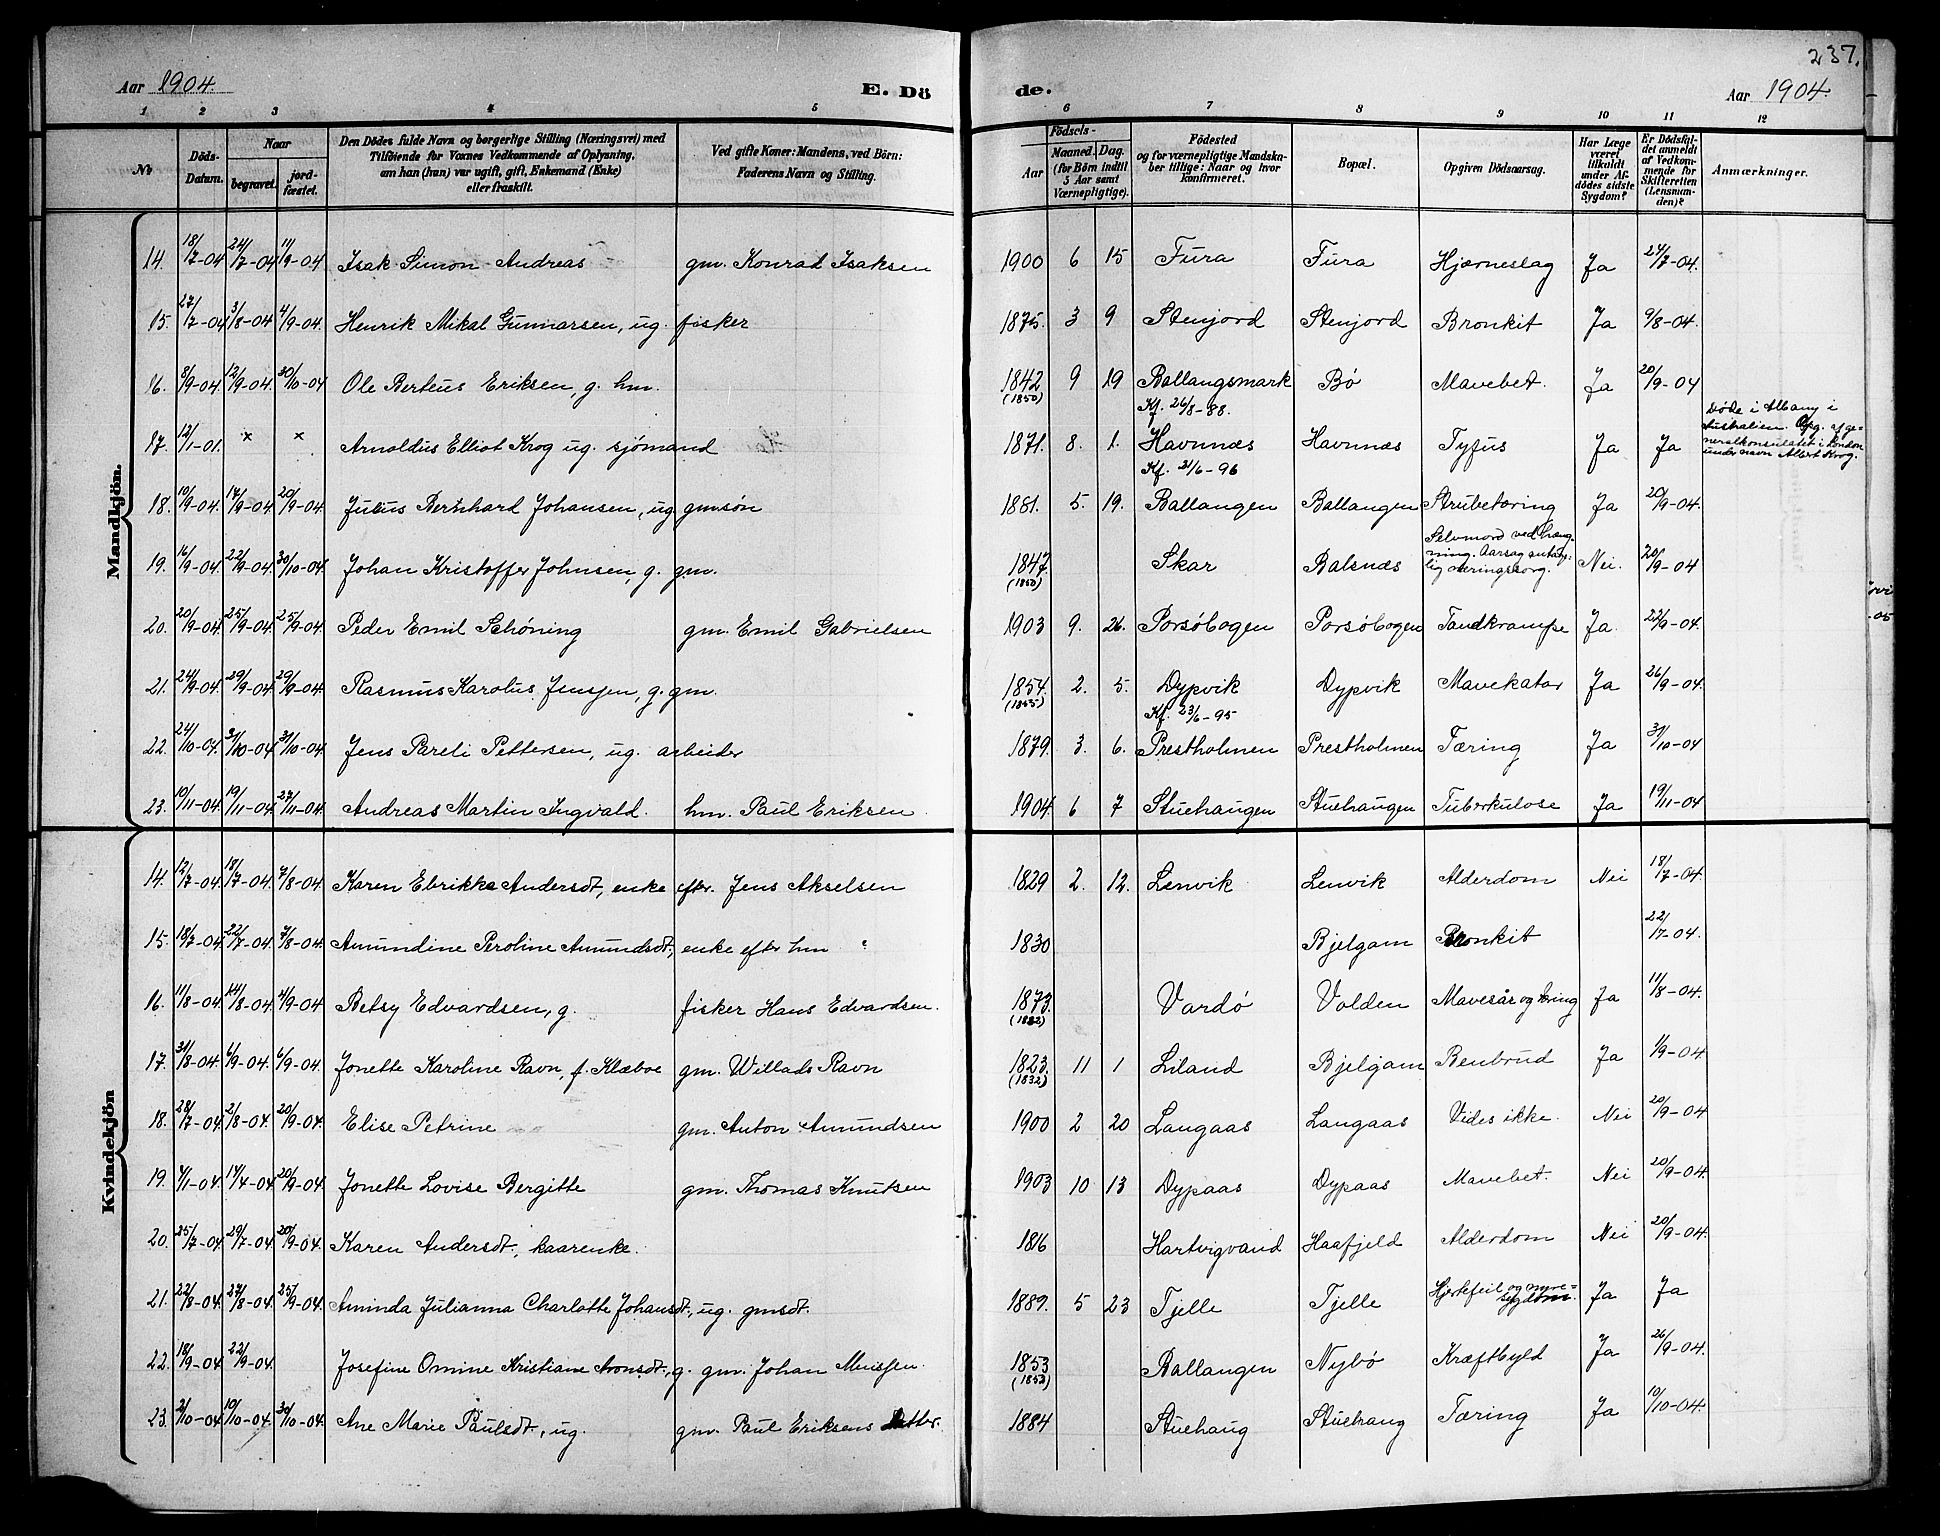 237.
Aar 1904. E. Dö de. Aar 1904.
1 2 3 4 5 6 7 8 9 10 11 12
No
Döds-Datum.
Naar
begravet.
jord-fæstet.
Den Dödes fulde Navn og borgerlige Stilling (Næringsvei) med
Tilföiende for Voxnes Vedkommende af Oplysning,
om han (hun) var ugift, gift, Enkemand (Enke)
eller fraskilt.
Ved gifte Koner: Mandens, ved Börn:
Faderens Navn og Stilling.
Födsels-
Aar
Maaned. Dag.
(for Börn indtil
5 Aar samt
Værnepligtige).
Födested
og for værnepligtige Mandska-
ber tillige: Naar og hvor
konfirmeret.
Bopæl.
Opgiven Dödsaarsag.
Har Læge
været
tilkaldt
under Af-
dödes sidste
Sygdom?
Er Dödsfal-
det anmeldt
af Vedkom-
mende for
Skifteretten
(Lensman-
den)?
Anmærkninger.
Mandkjön.
14. 18/7-04 24/7-04 11/9-04 Isak Simon Andreas gm. Konrad Isaksen 1900 6 15 Fura Fura Hjærneslag Ja 24/7-04.
15. 27/7-04 3/8-04 4/9-04. Henrik Mikal Gunnarsen, ug. fisker 1875. 3 9 Stenjord Stenjord Bronkit Ja 9/8-04.
16. 8/9-04. 12/9-04. 30/10-04 Ole Berteus Eriksen, g. hm. 1842 (1850) 9 19 Ballangsmark Bø Mavebet. Ja 20/9-04
17. 12/1-01. x x Arnoldus Elliot Krog ug. sjömand 1871. 8. 1. Kf. 26/8-88. Havnnæs Havnnæs Tyfus Ja Ja Døde i Albany i
Australien. Opg. af ge-
neralkonsulatet i London
under navn Albert Krog.
18. 10/9-04. 17/9-04. 20/9-04 Julius Bernhard Johansen, ug gmsøn 1881. 5. 19. Kf. 21/6-96 Ballangen Ballangen Strubetæring Ja 20/9-04.
19. 16/9-04. 22/9-04. 30/10-04. Johan Kristoffer Johnsen, g. gm. 1847. (1850) Skar Balsnæs Selvmord ved hæng-
ning. Aarsag antag-
lig næringssorg. Nei. 20/9-04
20. 20/9-04. 25/9-04. 25/9-04. Peder Emil Schöning gm. Emil Gabrielsen 1903 9. 26. Porsöbogen Porsöbogen Tandkrampe Ja. 22/9-04.
21. 24/9-04. 29/9-04 29/9-04. Rasmus Karolus Jenssen, g. gm. 1854. (1855) 2. 5. Dypvik Dypvik Mavekatar Ja 26/9-04.
22. 24/10-04. 31/10-04 31/10-04. Jens Pareli Pettersen, ug. arbeider 1879. 3. 6. Kf. 23/6-95 Prestholmen Prestholmen Tæring Ja 31/10-04
23. 10/11-04. 19/11-04 27/11-04. Andreas Martin Ingvald. hm. Paul Eriksen. 1904. 6 7 Stuehaugen Stuehaugen Tuberkulose Ja 19/11-04
Kvindekjön
14. 12/7-04. 18/7-04. 7/8-04. Karen Ebrikke Andersdt, enke efter. Jens Akselsen 1829 2. 12. Lenvik Lenvik Alderdom Nei 18/7-04
15. 18/7-04. 22/7-04. 7/8-04. Amundine Peroline Amundsdt, enke efter hm 1830 Bjelgam Bronkit 22/7-04.
16. 11/8-04. 14/8-04. 4/9-04 Betsy Edvardsen, g. fisker Hans Edvardsen. 1873. (1882) Vardø Volden Mavesår og tæring Ja 11/8-04.
17. 31/8-04. 6/9-04. 6/9-04. Jonette Karoline Ravn, f. Klæboe gm. Willads Ravn 1823. (1832) 11 1 Liland Bjelgam Benbrud Ja 1/9-04
18. 28/7-04. 2/8-04. 20/9-04. Elise Petrine gm. Anton Amundsen 1900 2 20 Langaas Langaas Vides ikke. Nei 20/9-04
19. 4/1-04. 17/4-04. 20/9-04 Jonette Lovise Bergitte gm. Thomas Knutsen 1903 10 13 Dypaas Dypaas Mavebet. Nei 20/9-04.
20. 25/7-04 29/7-04 20/9-04. Karen Andersdt, kaarenke. 1816 Hartvigvand Haafjeld Alderdom Nei 20/9-04.
21. 22/8-04. 27/8-04. 25/9-04. Aminda Julianna Charlotte Johansdt, ug. gmsdt. 1889. 5 23 Tjelle Tjelle Hjertefeil og nyre-
sygdom. Ja Ja
22. 18/9-04 22/9-04. Josefine Omine Kristiane Aronsdt, g. gm. Johan Monssen. 1853 (1852) Ballangen Nybø Kræftbyld Ja 26/9-04.
23. 2/10-04 10/10-04. 30/10-04. Ane Marie Paulsdt, ug. gm. Paul Eriksens datter. 1884 Stuehaug Stuehaug Tæring Ja 10/10-04.